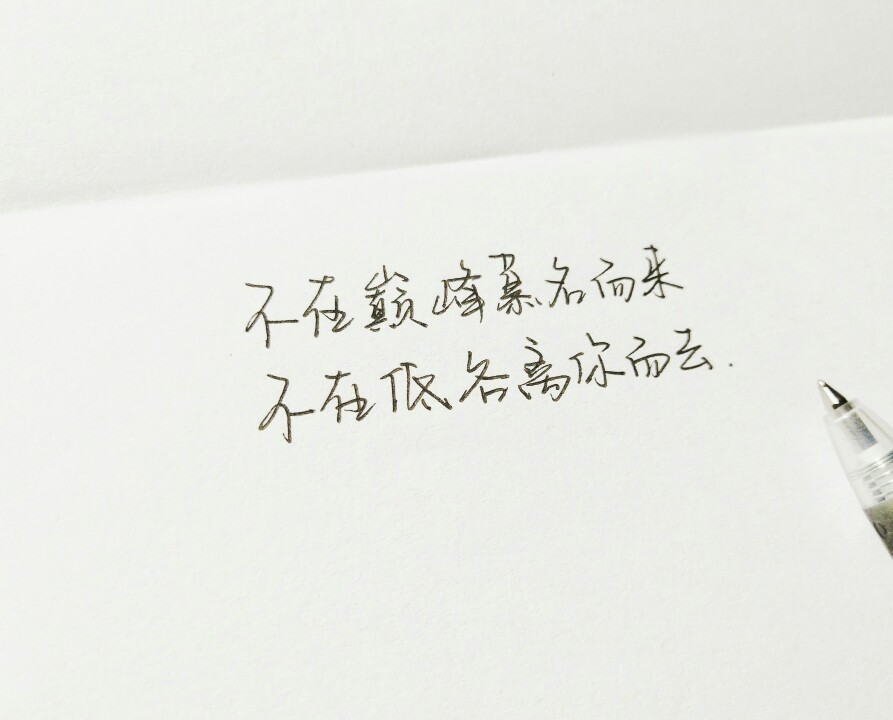 不在巅峰慕名而来
不在低谷离你而去.